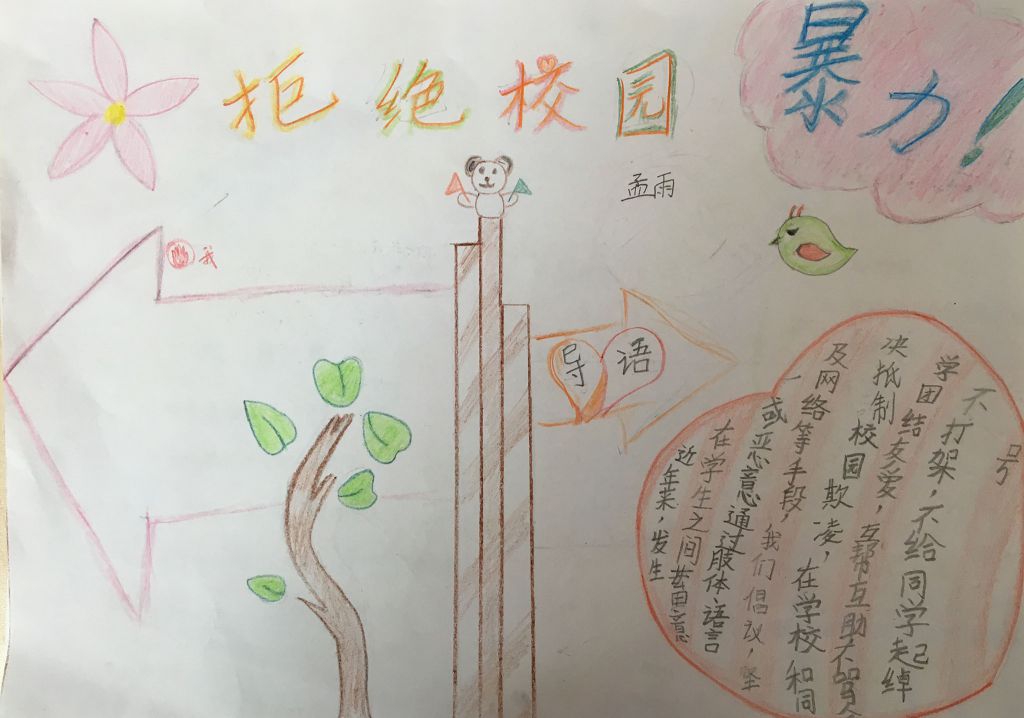 拒绝校园
暴力！
孟雨
我
导语
近年来，发生
在学生之间蓄意
或恶意通过服体语言
及网络等手段，我们倡议，坚
决抵制校园欺凌，在学校和同
学团结友爱，互帮互助不骂
不打架，不给同学起绰
号